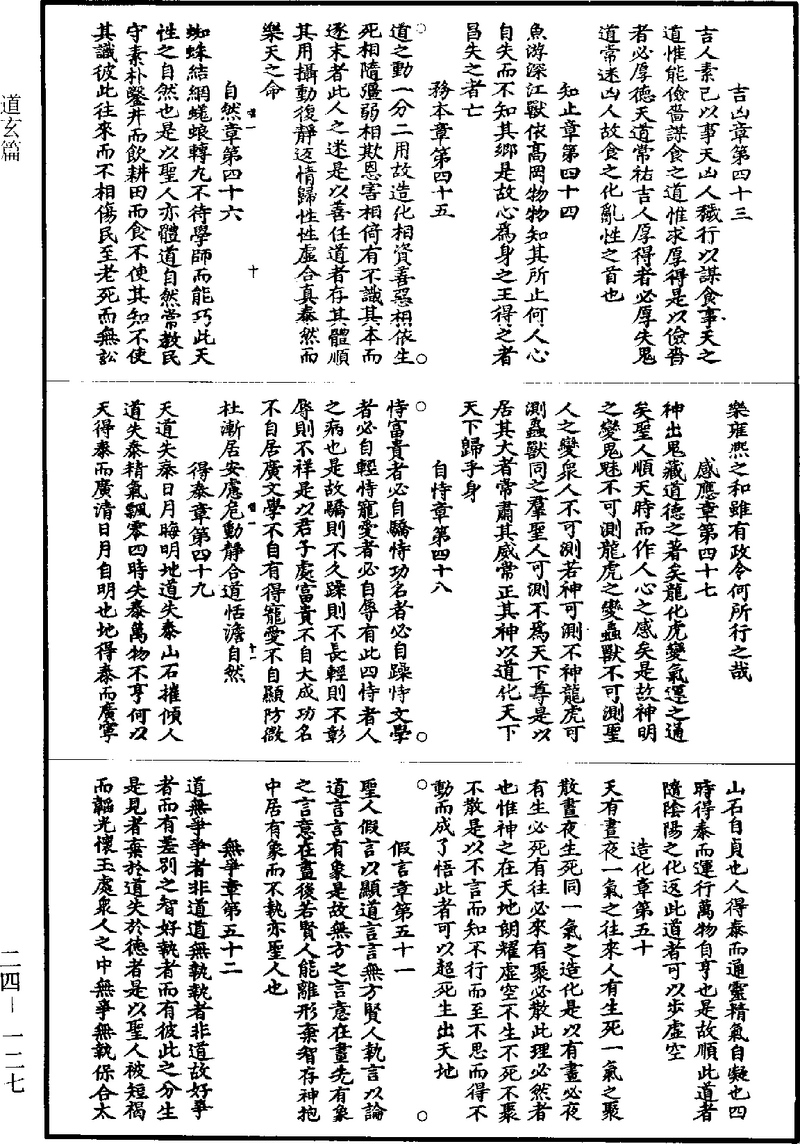 吉凶章第四十三
吉人素己以事天凶人穢行以謀食事天之
道惟能儉嗇謀食之道惟求厚得是以儉嗇
者必厚德天道常祐吉人厚得者必厚失鬼
道常迷凶人故食之化亂性之首也
知止章第四十四
魚游深江獸依高岡物物知其所止何人心
自失而不知其鄉是故心為身之王得之者
昌失之者亡
務本章第四十五
道之動一分二用故造化相資善惡相依生
死相隨彊弱相欺恩害相倚有不識其本而
逐末者此人之迷是以善任道者存其體順
其用攝動復靜返情歸性性虛合真泰然而
樂天之命
自然章第四十六
蜘蛛結網蜣蜋轉丸不待學師而能巧此天
性之自然也是以聖人亦體道自然常教民
守素朴鑿井而飲耕田而食不使其知不使
其識彼此往來而不相傷民至老死而無訟
樂雍熙之和雖有政令何所行之哉
感應章第四十七
神出鬼藏道德之著矣龍化虎變氣運之通
矣聖人順天時而作人心之感矣是故神明
之變鬼魅不可測龍虎之變蟲獸不可測聖
人之變衆人不可測若神可測不神龍虎可
測蟲獸同之羣聖人可測不為天下尊是以
居其大者常肅其威常正其神以道化天下
天下歸乎身
自恃章第四十八
恃富貴者必自驕恃功名者必自躁恃文學
者必自輕恃寵愛者必自辱有此四恃者人
之病也是故驕則不久躁則不長輕則不彰
辱則不祥是以君子處富貴不自大成功名
不自居廣文學不自有得寵愛不自顯防微
杜漸居安慮危動靜合道恬澹自然
得泰章第四十九
天道失泰日月晦明地道失泰山石摧傾人
道失泰精氣飄零四時失泰萬物不亨何以
天得泰而廣清日月自明也地得泰而廣寧
山石自貞也人得泰而通靈精氣自凝也四
時得泰而運行萬物自亨也是故順此道者
隨陰陽之化返此道者可以步虛空
造化章第五十
天有晝夜一氣之往來人有生死一氣之聚
散晝夜生死同一氣之造化是以有晝必夜
有生必死有往必來有聚必散此理必然者
也惟神之在天地朗耀虛空不生不死不聚
不散是以不言而知不行而至不思而得不
動而成了悟此者可以超死生出天地
假言章第五十一
聖人假言以顯道言言無方賢人執言以論
道言言有象是故無方之言意在畫先有象
之言意在畫後若賢人能離形棄智存神抱
中居有象而不執亦聖人也
無爭章第五十二
道無爭爭者非道道無執執者非道故好爭
者而有差別之智好執者而有彼此之分生
是見者棄於道失於德者是以聖人被短褐
而韜光懷玉處衆人之中無爭無執保合太
道玄篇
二四－一二七